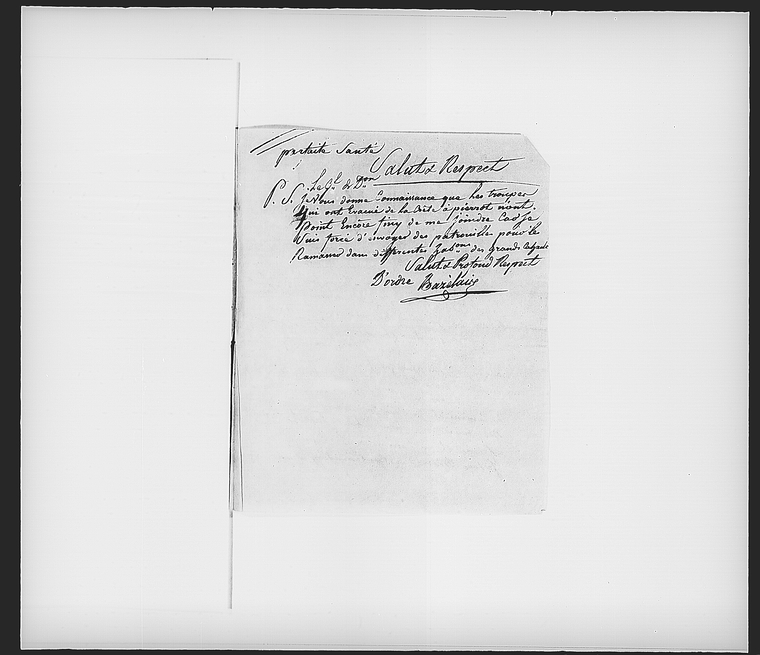 parfaite Santé
Salut & Respect
Le Gl. de Don
P. S. Je Vous donne Connaissance que Les troupes
Qui ont Evacué de la Crête à pierrot n'ont
Point Encore finy de me joindre
Suis forcé d'envoyer des patrouille pour le
Ramasser dans différentes habons des Grands
Salut & Profond Respect
D'ordre Bazelais